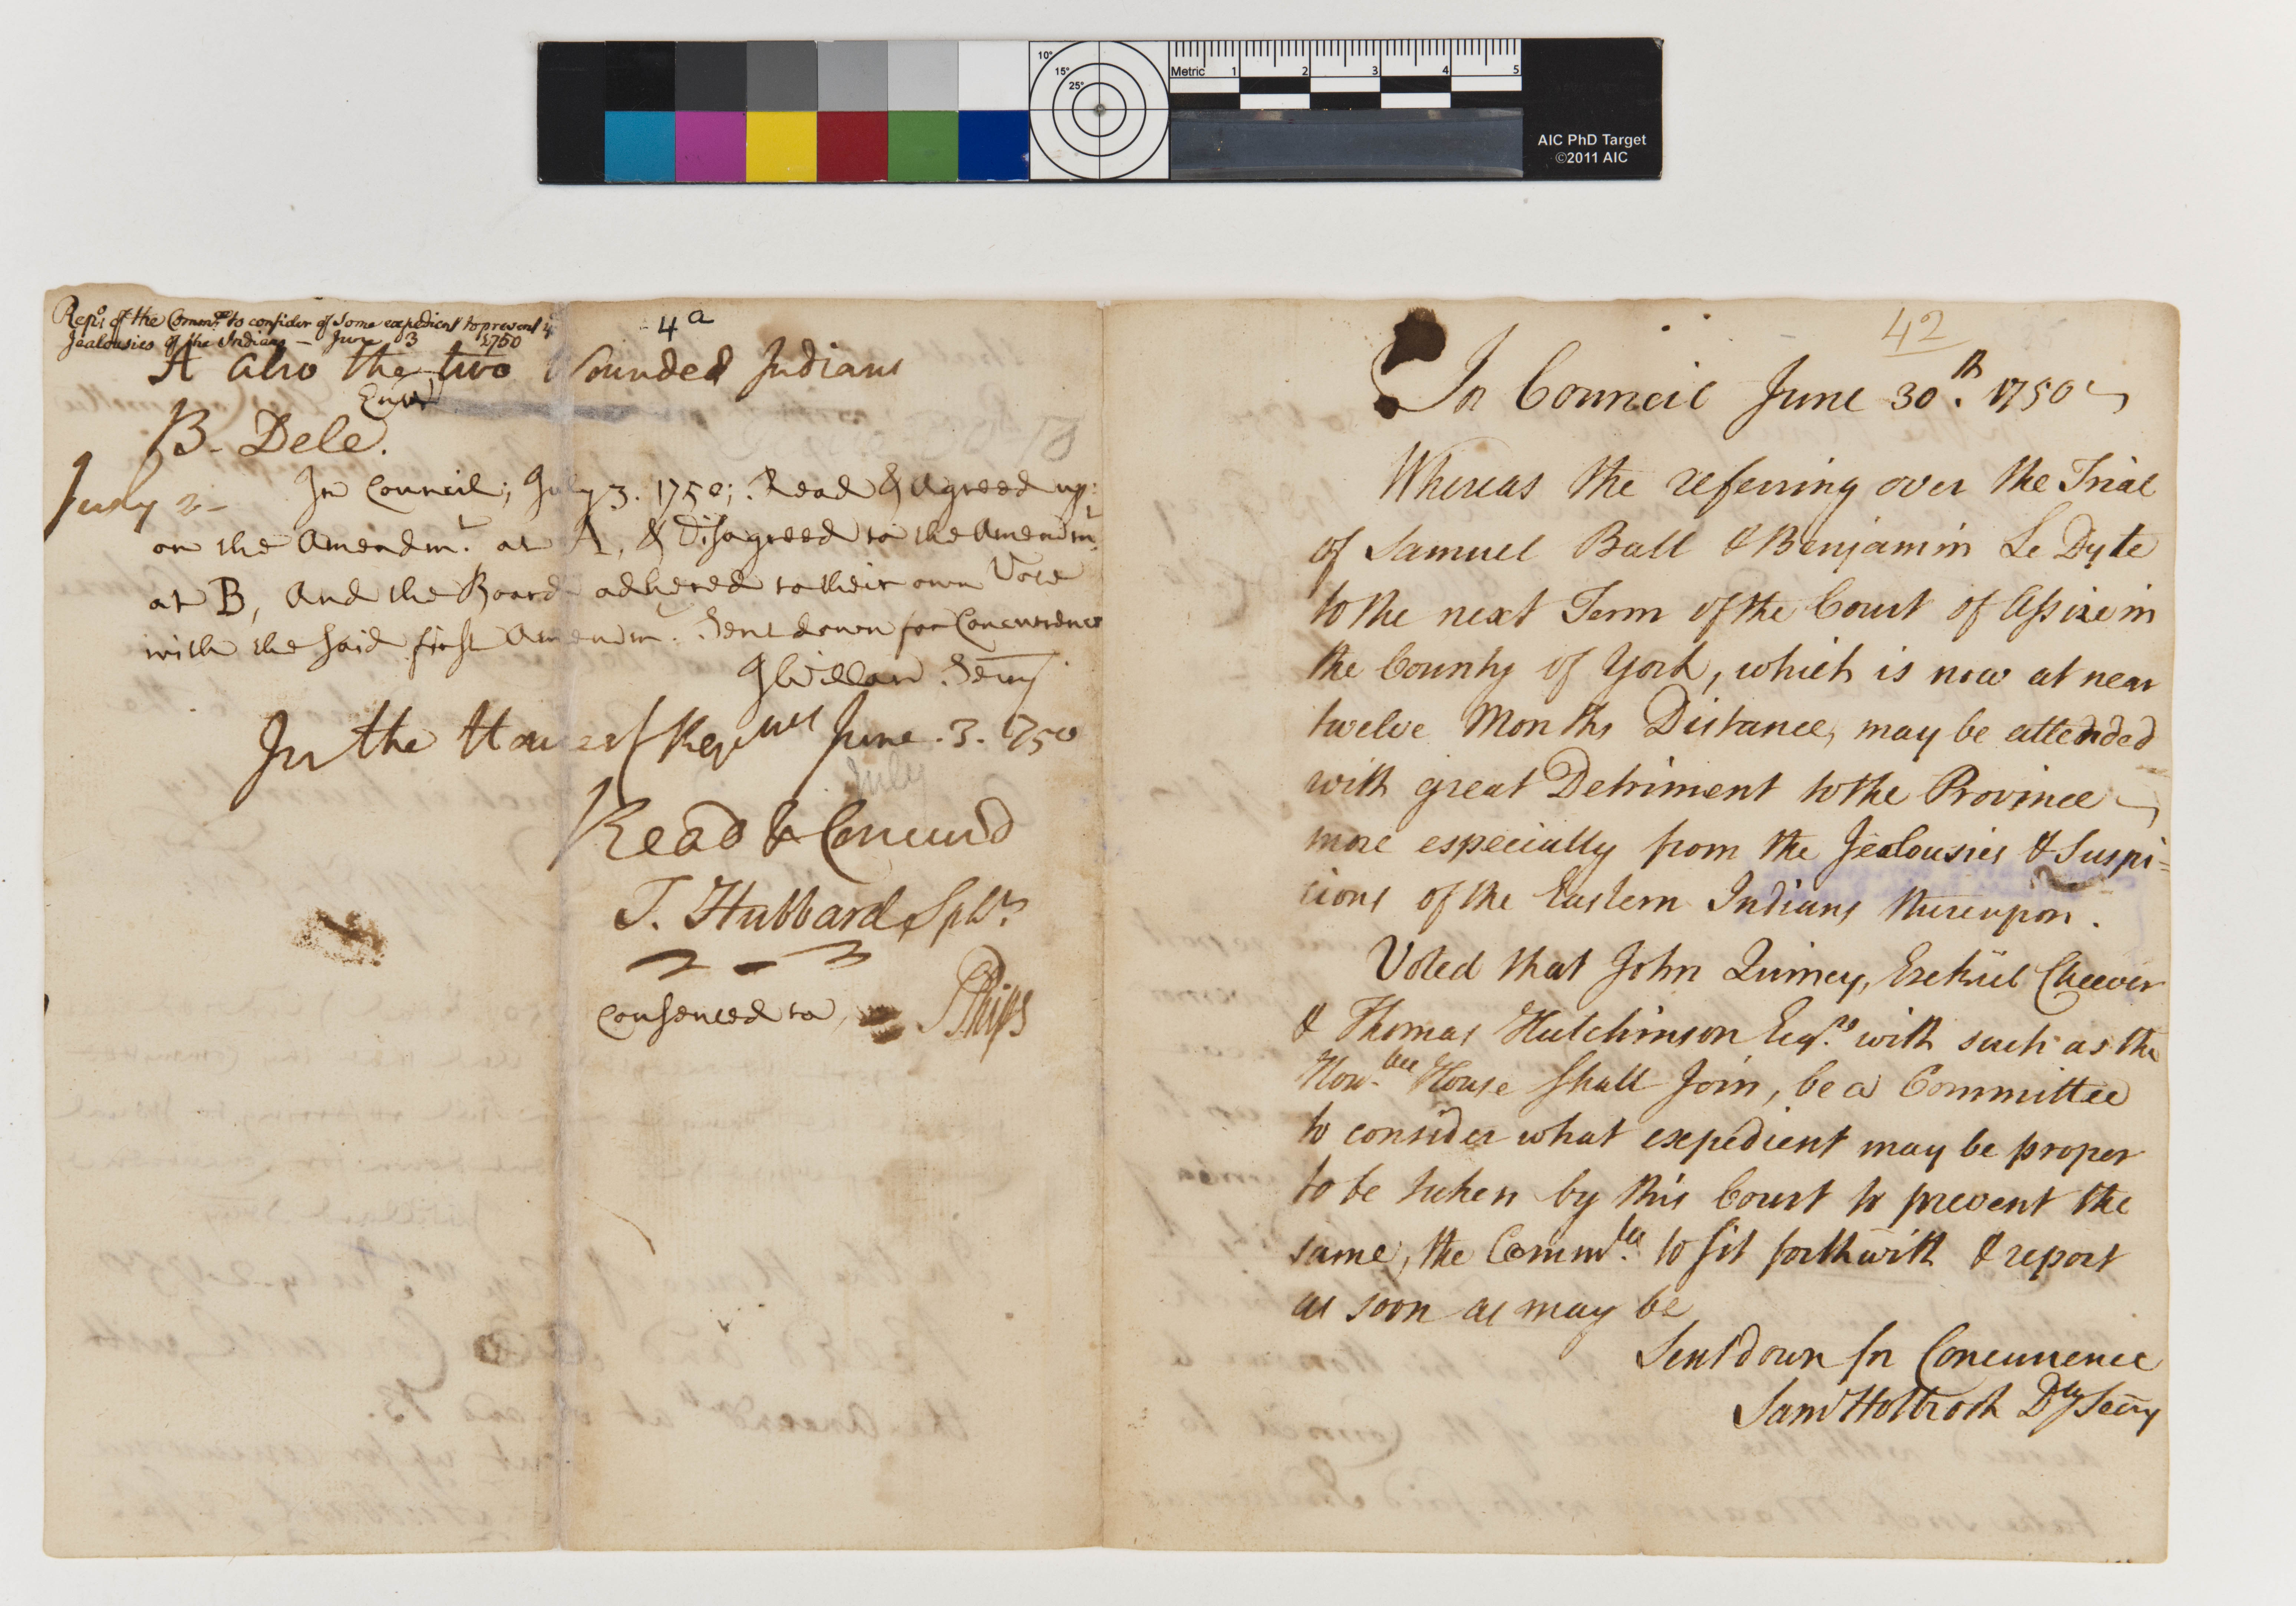 10°
15°
25°
Metric 1 2 3 4 5
AIC PhD Target
©2011 AIC
Rep.t of the Comm.tee to consider of some expedient to prevent ye
Jealousies of the Indians — June 3 1750
4a
A also the two Wounded Indians
B - Dele.
July 2 -
In Council; July 3. 1750; Read & Agreed up:
on the Amendm.t at A, & Disagreed to the Amendm.t
at B, And the Board adhered to their own Vote
with the said first Amendm.t. Sent down for Concurrence
J Willard Secry
In the House of Repives June. 3. 1750
July
Read & Concurd
T. Hubbard Spkr.
Consented to,
S Phips
42
In Council June 30th. 1750
Whereas the referring over the Trial
of Samuel Ball & Benjamin Le Dyte
to the next Term of the Court of Assize in
the County of York, which is now at near
twelve Months Distance, may be attended
with great Detriment to the Province
more especially from the Jealousies & Suspi=
cions of the Eastern Indians thereupon.
Voted that John Quincy, Ezekiel Cheever
& Thomas Hutchinson Esqrs. with such as the
Honble House shall Join, be a Committee
to consider what expedient may be proper
to be taken by this Court to prevent the
same, the Commtee. to sit forthwith & report
as soon as may be
Sent down for Concurrence
Saml Holbrook Dty Secry